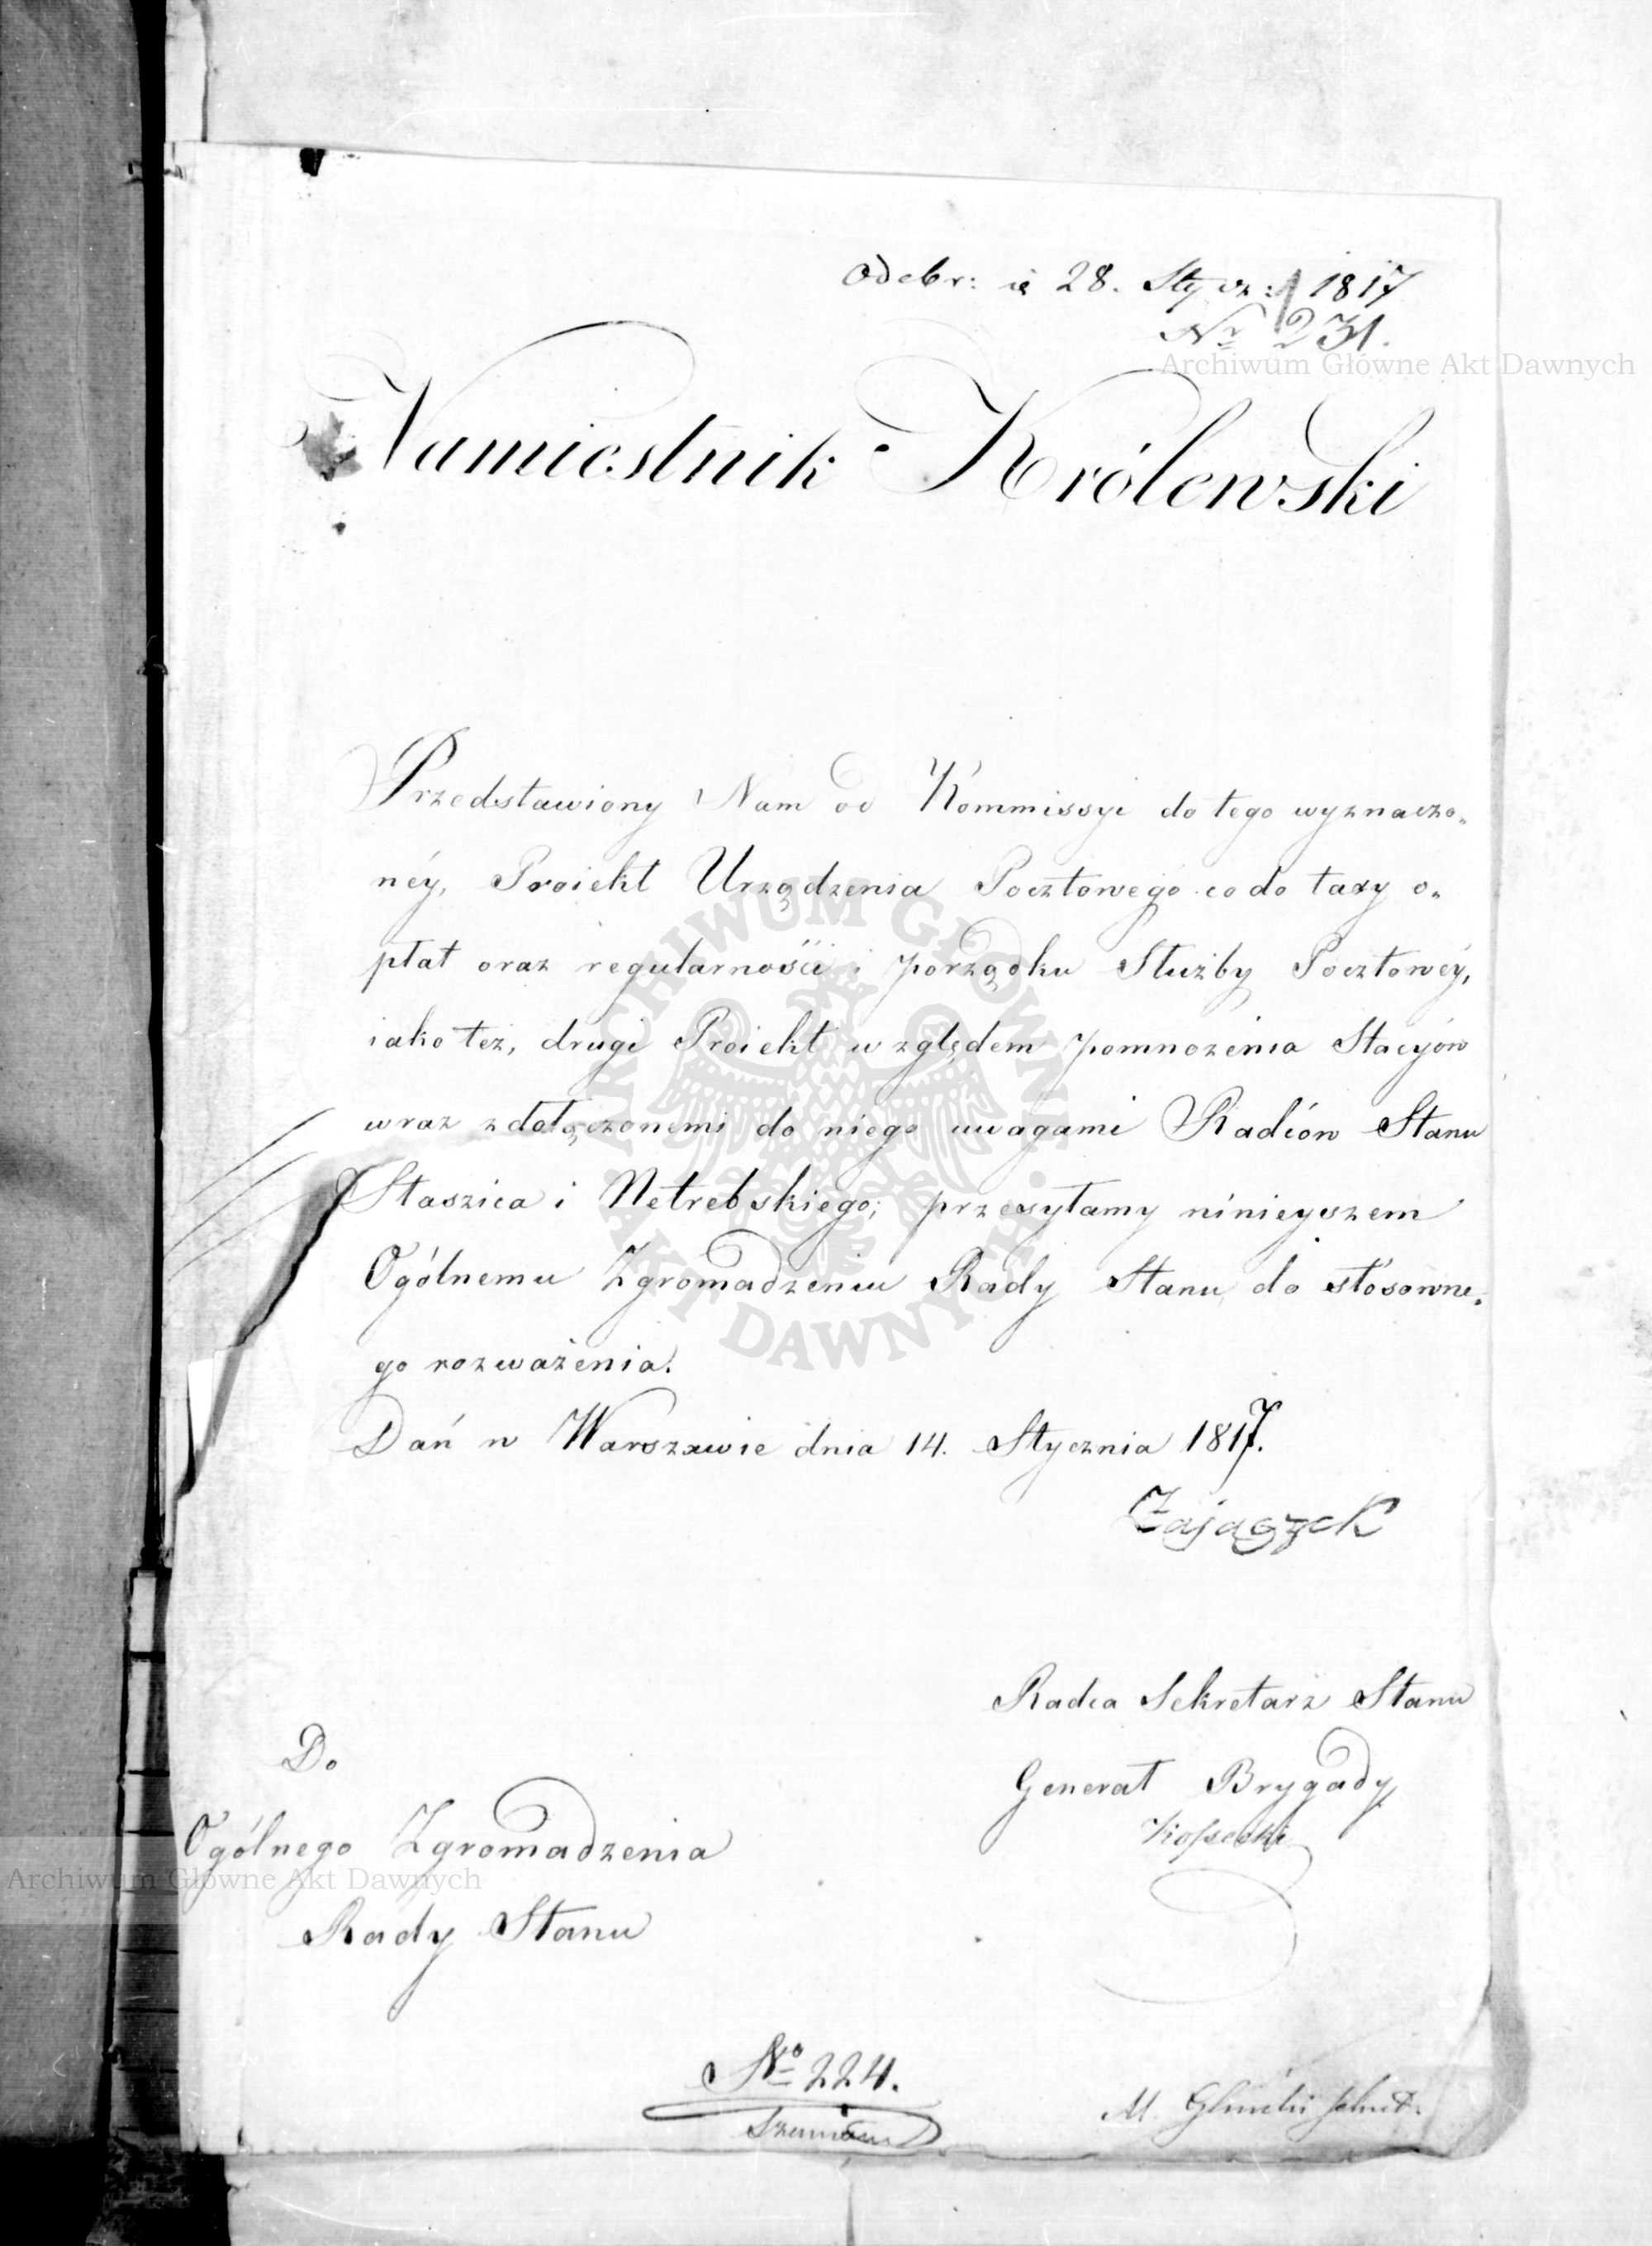 Odebr: ie 28. Stycz: 1817
Nr 231.
Archiwum Główne Akt Dawnych
Namiestnik Królewski
Przedstawiony Nam od Kommissyi do tego wyznaczo-
néy, Proiekt Urządzenia Pocztowego co do taxy o-
płat oraz regularności i porządku Służby Pocztowéy,
iako też, drugi Proiekt względem pomnożenia Stacyiów
wraz z dołączonemi do niego uwagami Radców Stanu
Staszica i Netrebskiego; przesyłamy ninieyszem
Ogólnemu Zgromadzeniu Rady Stanu do stósowne-
go rozważenia.
Dań w Warszawie dnia 14. Stycznia 1817.
Zajączek
Radca Sekretarz Stanu
Generał Brygady
Kossecki
Do
Ogólnego Zgromadzenia
Archiwum Główne Akt Dawnych
Rady Stanu
No 224.
M.
ARCHIWUM GŁÓWNE AKT DAWNYCH